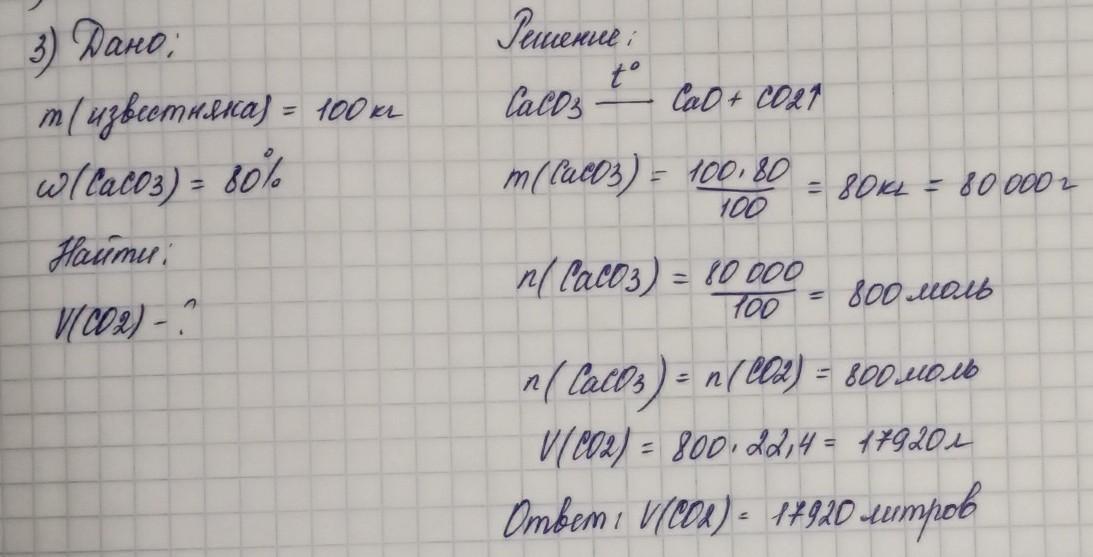 3) Дано:
m(известняка) = 100 кг
w(CaCO3) = 80%
Найти:
V(CO2) - ?
Решение:
t°
CaCO3 — CaO + CO2↑
m(CaCO3) = 100·80/100 = 80кг = 80 000 г
n(CaCO3) = 80 000/100 = 800 моль
n(CaCO3) = n(CO2) = 800 моль
V(CO2) = 800·22,4 = 17920 л
Ответ: V(CO2) = 17920 литров